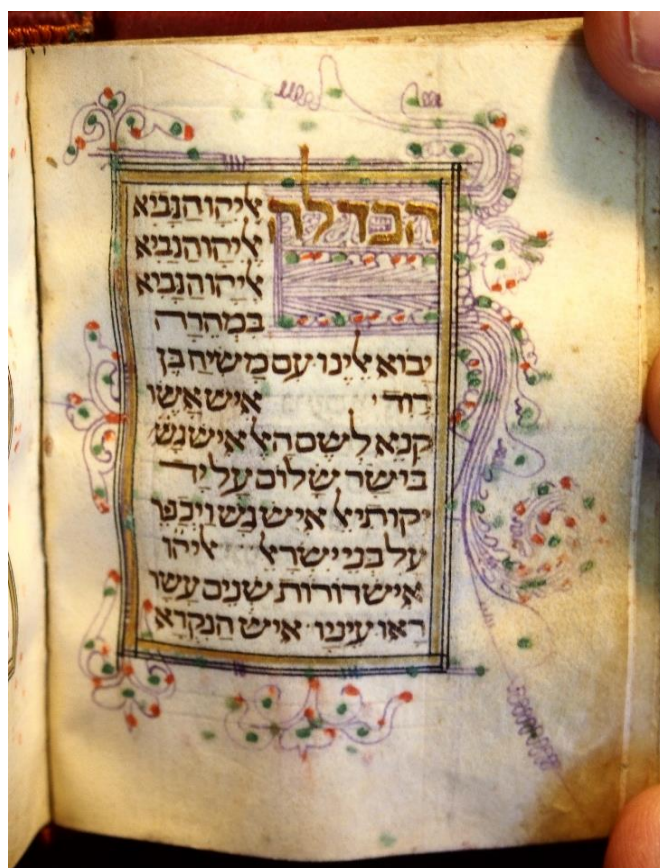 הבדלה אליהו הנביא
אליהו הנביא
אליהו הנביא
במהרה
יבוא אלינו עם משיח בן
דוד איש אשר
קנא לשם האל איש
בישר שלום על יד
יקותיאל איש גש ויכפר
על בני ישראל אליהו
איש דורות שנים עשר
ראו עיניו איש הנקרא